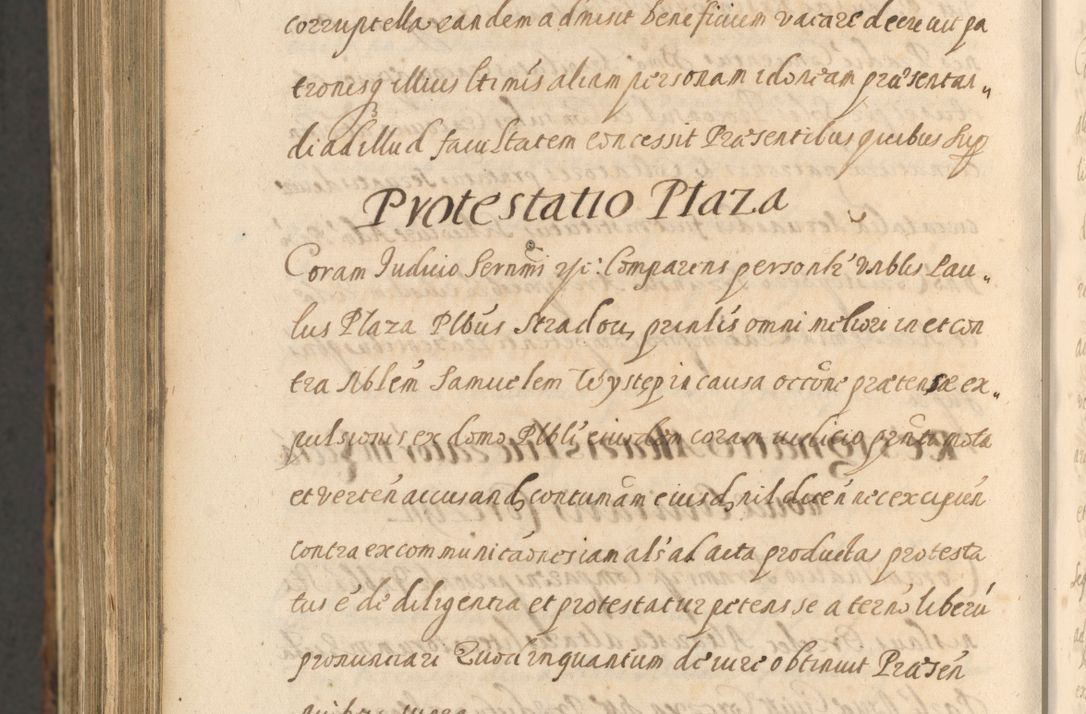 corruptella eandem admisit beneficium vacare decrevit pa
tronisq illius ltimis aliam personam idoneam præsentan„
di ad illud facultatem concessit Præsentibus quibus sup
Protestatio Plaza
Coram Judicio Sernmi &c: Comparens personlr Vnblis Pau„
lus Plaza Plbus Stradou, prinlis omni meliori in et con
tra Nblem Samuelem Wystep in causa occõne prætensæ ex„
pulsionis ex domo Plbli eiusdem coram iudicio prnti mota
et verten accusand contumãm eiusd nil dicen nec excipien
contra excommunicãones iam als ad acta producta protesta
tus e de diligentia et protestatur petens se a termo liberũ
pronunciari Quod inquantum de iure obtinuit Præsen
quibus supra